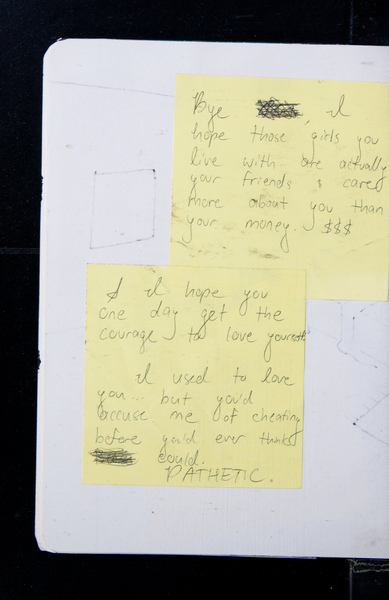 Bye , I
hope those girls you
live with are actually
your friends & cared
more about you than
your money. $$$
& I hope you
one day get the
courage to love yourself
I used to love
you... but you'd
accuse me of cheating
before you'd ever think
could.
PATHETIC.